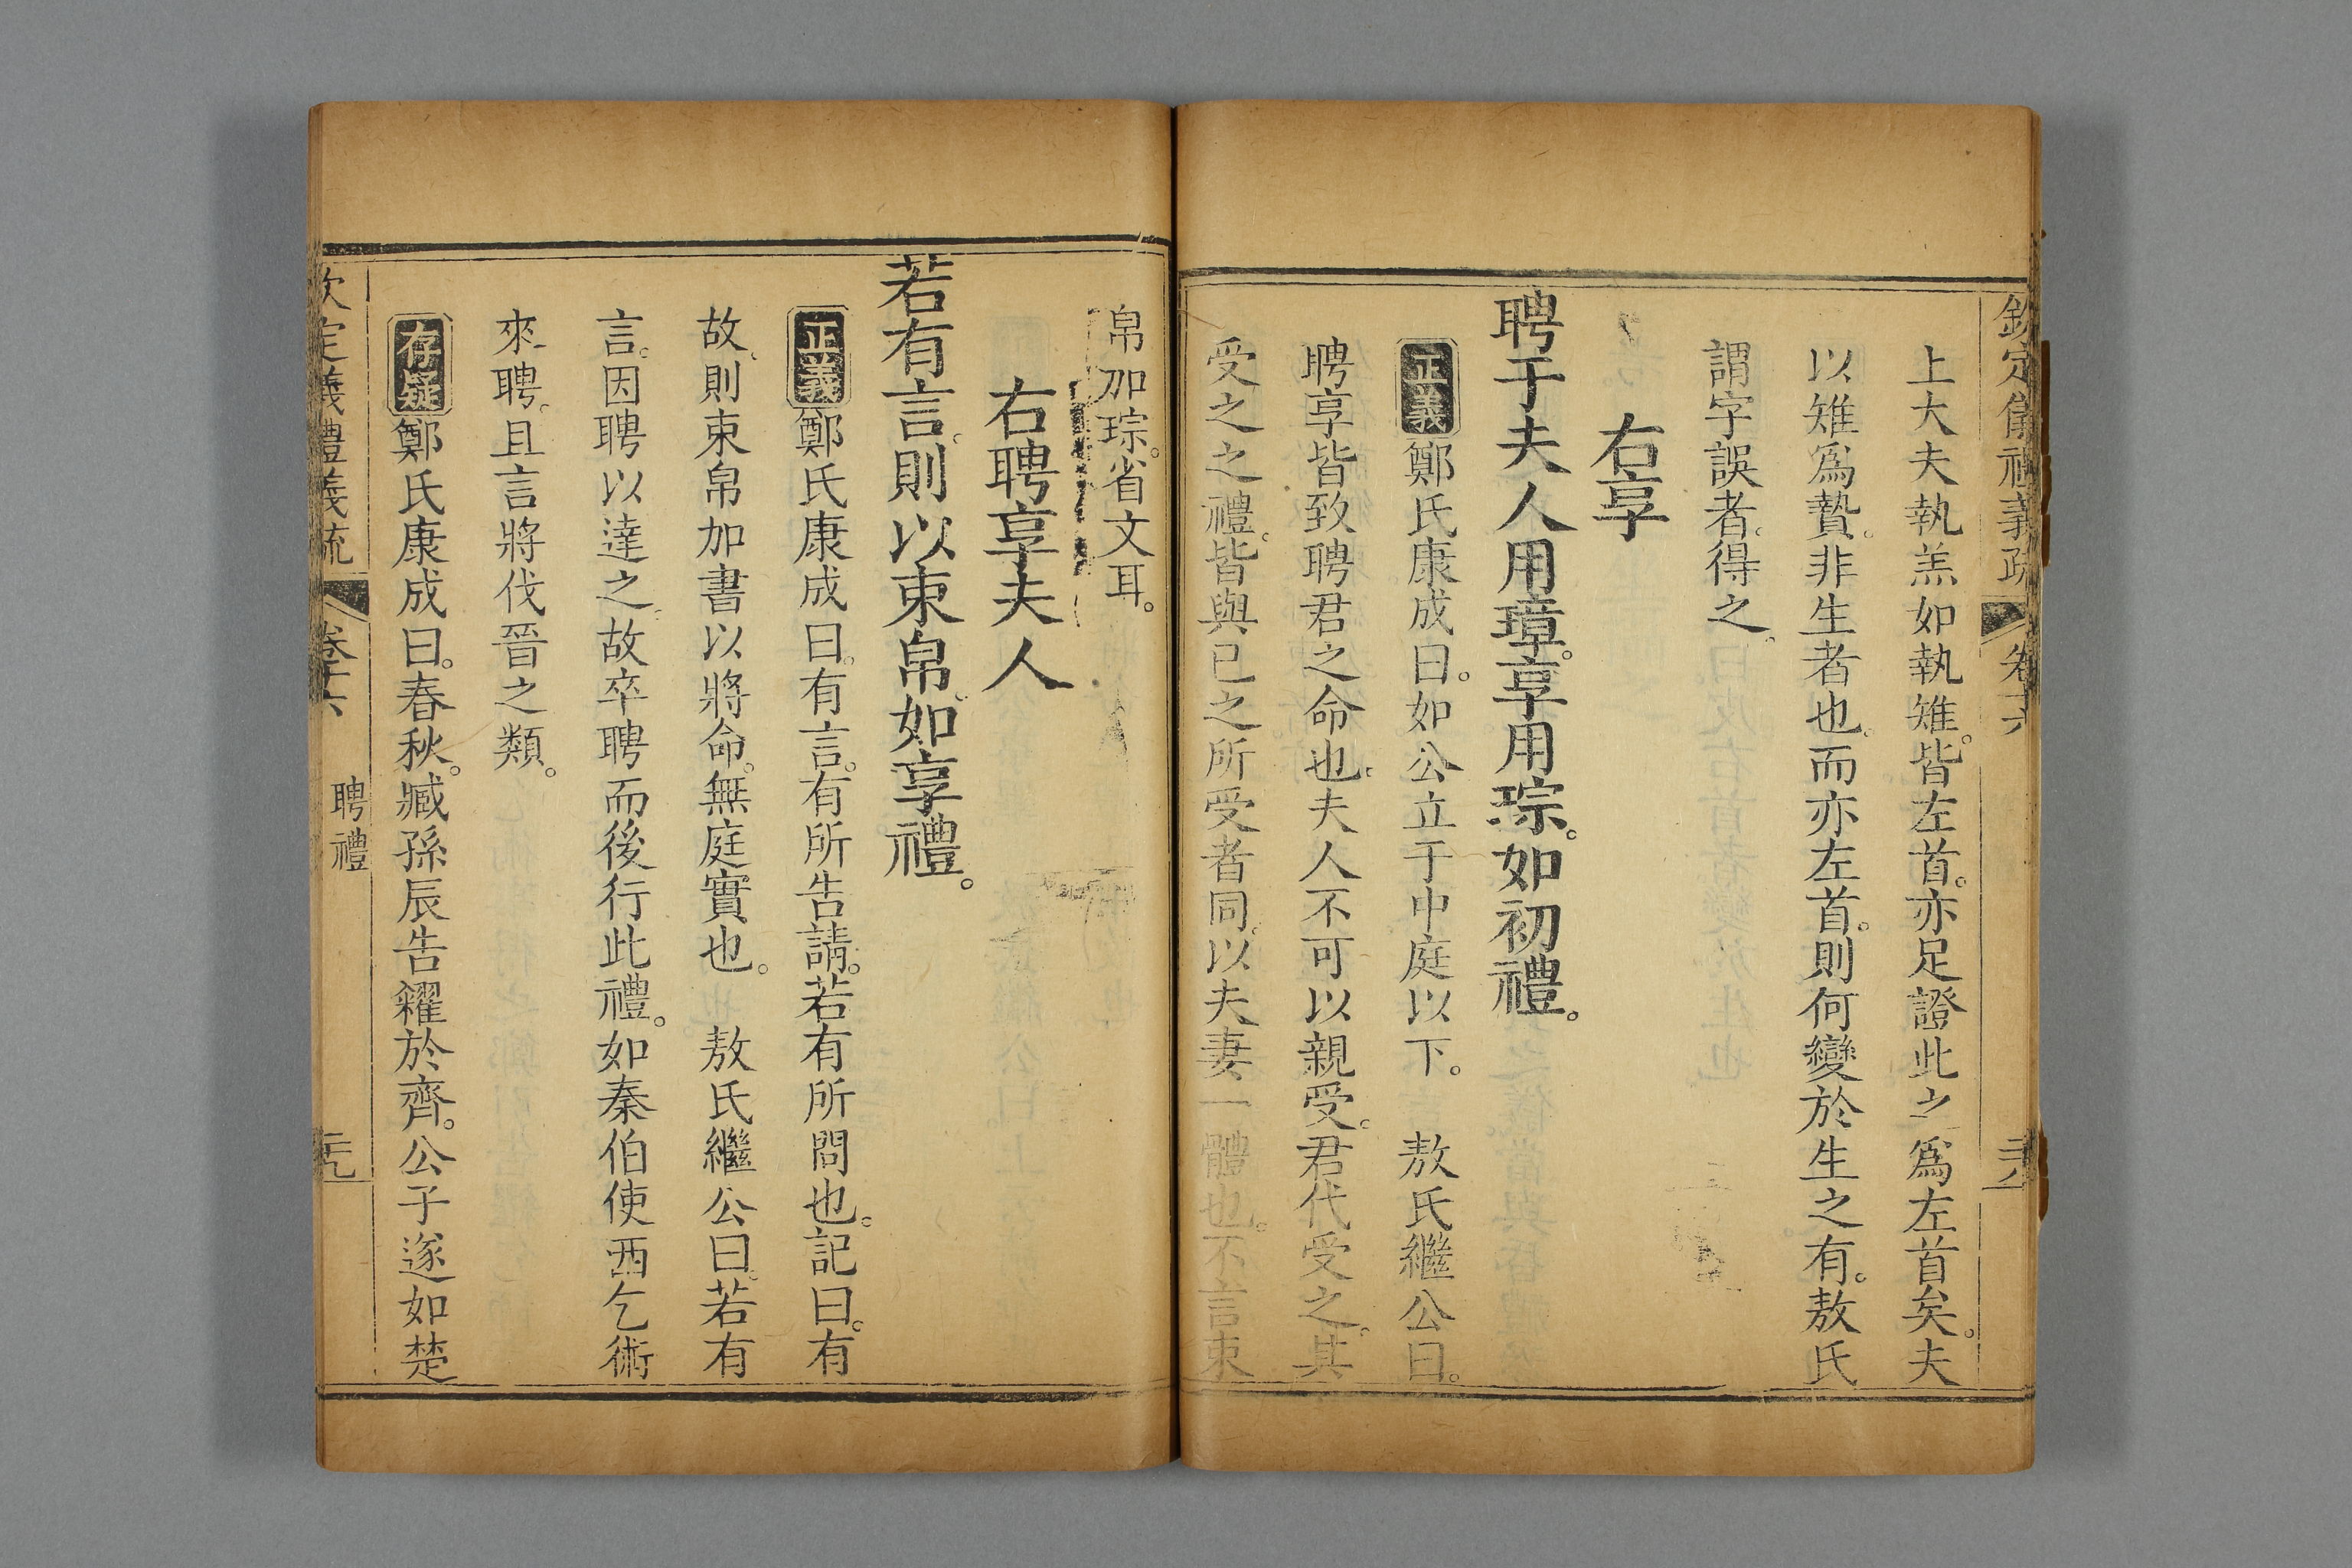 欽定儀禮義疏 卷十六 二十八
上大夫執羔如執雉。皆左首。亦足證此之爲左首矣。夫
以雉爲贄。非生者也。而亦左首。則何變於生之有。敖氏
謂字誤者。得之。
右享
聘于夫人用璋。享用琮。如初禮。
正義鄭氏康成曰。如公立于中庭以下。 敖氏繼公曰。
聘享皆致聘君之命也。夫人不可以親受。君代受之。其
受之之禮。皆與已之所受者同。以夫妻一體也。不言束
帛加琮。省文耳。
右聘享夫人
若有言。則以束帛。如享禮。
正義鄭氏康成曰。有言。有所告請。若有所問也。記曰。有
故。則束帛加書以將命。無庭實也。 敖氏繼公曰。若有
言。因聘以達之。故卒聘而後行此禮。如秦伯使西乞術
來聘。且言將伐晉之類。
存疑鄭氏康成曰。春秋。臧孫辰告糴於齊。公子遂如楚
欽定義禮義疏 卷十六 聘禮 二十九